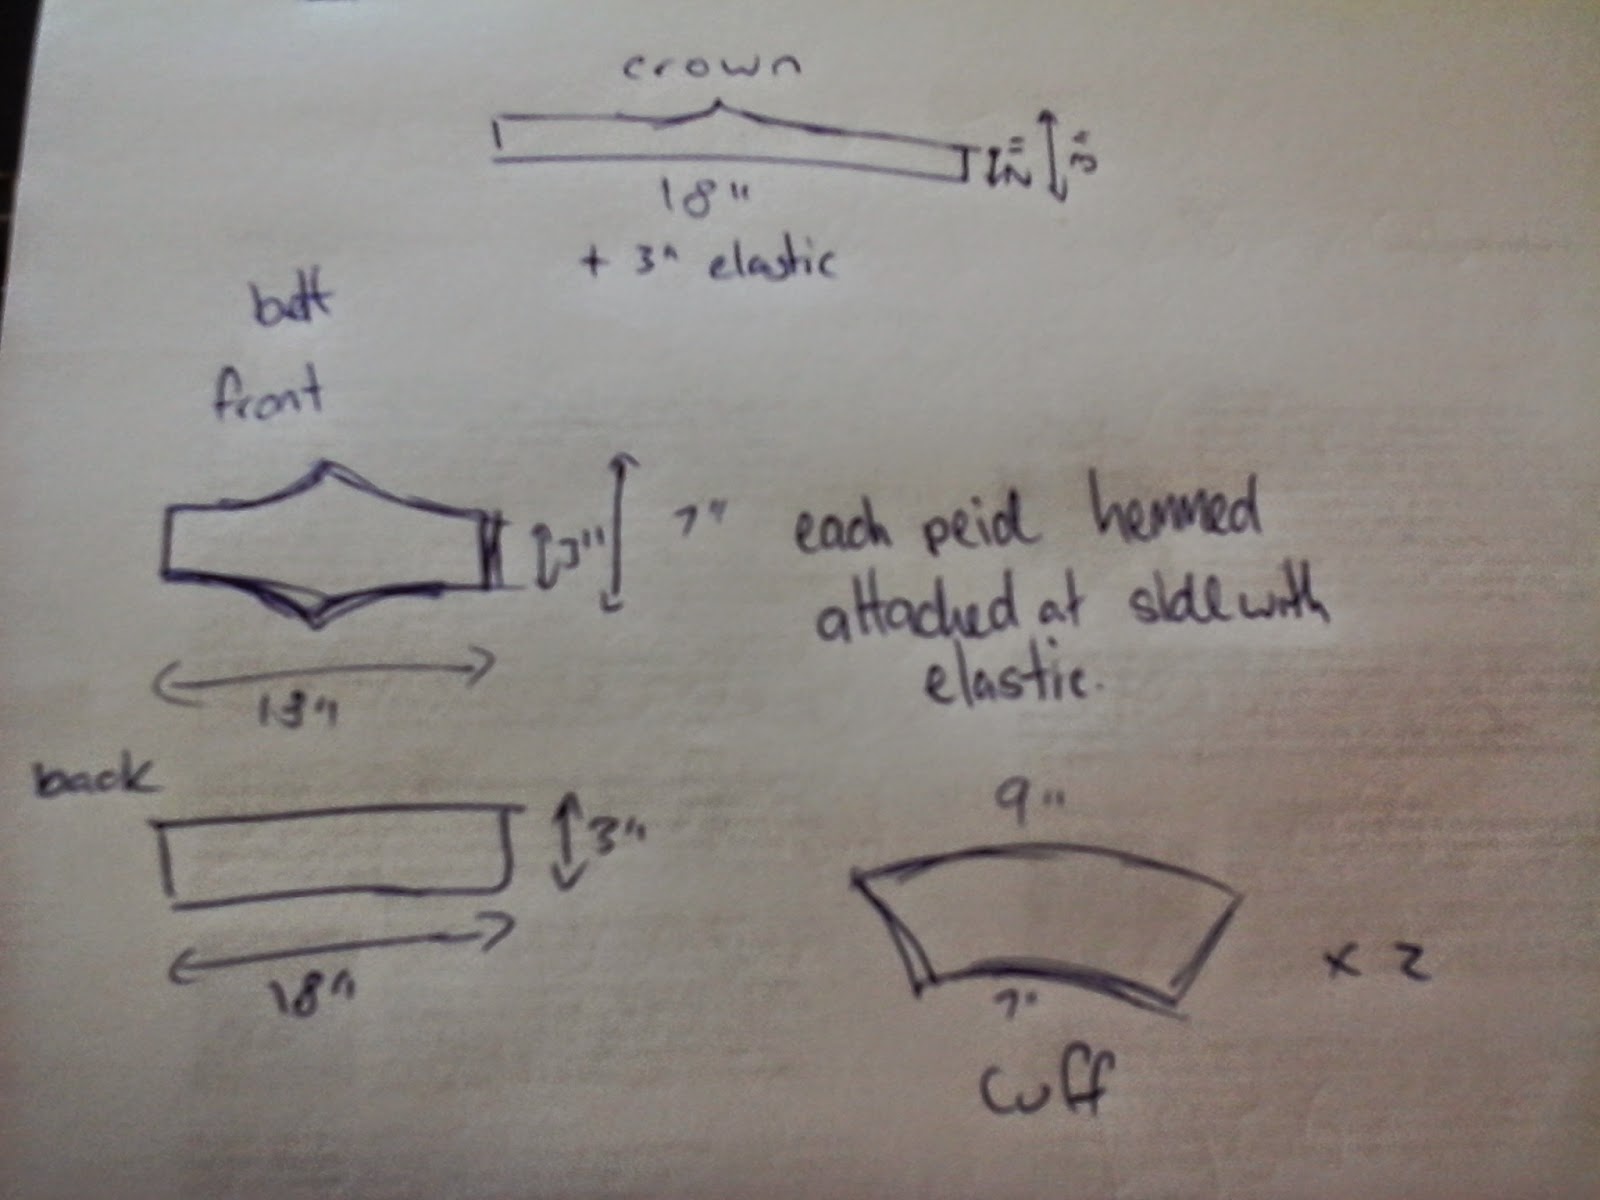 crown
2" 3"
18"
+ 3" elastic
belt
front
3" 7"
each peid hemmed
attached at side with
elastic.
13"
back
3"
18"
9"
7"
x 2
cuff